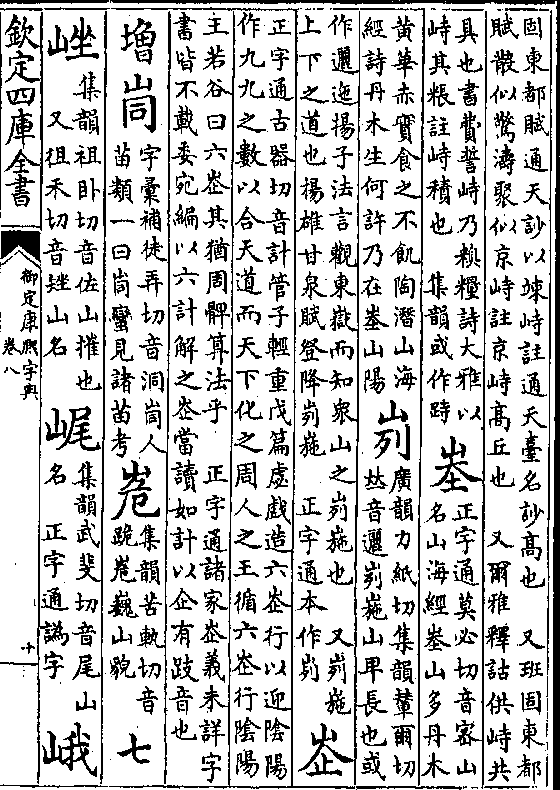 固東都賦通天訬以竦峙註通天臺名訬高也 又班固東都
賦散似驚濤聚似京峙註京峙高丘也 又爾雅釋詁供峙共
具也書費誓峙乃糗糧詩大雅以
峙其粻註峙積也 集韻或作跱
峚
正字通莫必切音密山
名山海經峚山多丹木
黃華赤實食之不飢陶潛山海
經詩丹木生何許乃在峚山陽
峛
廣韻力紙切集韻輦爾切
𠀤音邐峛崺山卑長也或
作邐迤揚子法言觀東嶽而知衆山之峛崺也 又峛崺
上下之道也揚雄甘泉賦登降峛崺 正字通本作峢
峜
正字通古器切音計管子輕重戊篇虙戲造六峜行以迎陰陽
作九九之數以合天道而天下化之周人之王循六峜行陰陽
王若谷曰六峜其猶周髀算法乎 正字通諸家峜義未詳字
書皆不載委宛編以六計解之峜當讀如計以企有跂音也
增峝
字彙補徒弄切音洞峝人
苗類一曰峝蠻見諸苗考
峗
集韻苦軌切音
跪峗巍山貌
七
㟇
集韻祖卧切音佐山摧也
又徂禾切音矬山名
集韻武斐切音尾山
名 正字通譌字
峨
欽定四庫全書
御定康熙字典
卷八
十